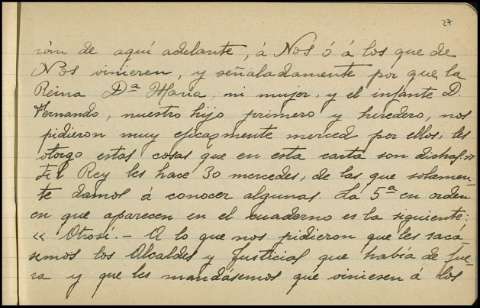 27
ron de aquí adelante, á Nos ó á los que de
Nos vinieren, y señaladamente por que la
Reina Dª Maria, mi mujer, y el infante D.
Fernando, nuestro hijo primero y heredero, nos
pidieron muy eficazmente merced por ellos, les
otorgo estas cosas que en esta carta son dichas."
El Rey les hace 30 mercedes, de las que solamen-
te damos á conocer algunas. La 5ª en orden
en que aparecen en el cuaderno es la siguiente:
"Otrosí.- A lo que nos pidieron que les sacá-
semos los Alcaldes y Justicias que había de fue-
ra y que les mandásemos que viniesen á los